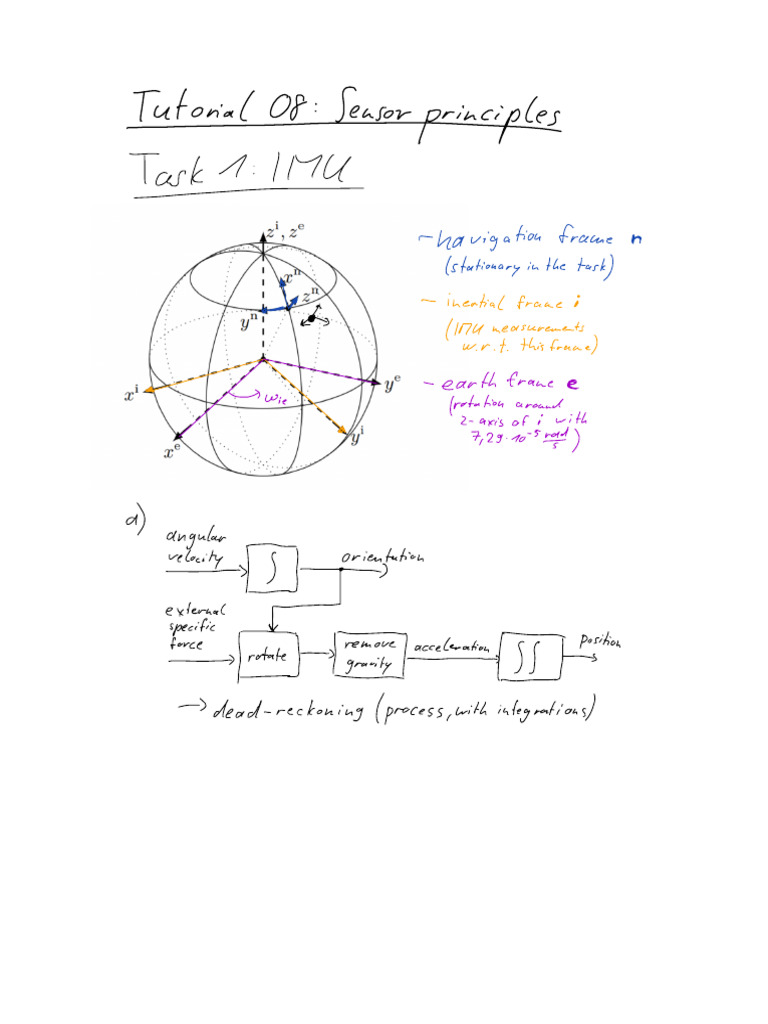 Tutorial 08: Sensor principles
Task 1: IMU
zⁱ, zᵉ
xⁿ
zⁿ
yⁿ
xⁱ
yᵉ
ω_ie
xᵉ
yⁱ
- navigation frame n
(stationary in the task)
- inertial frame i
(IMU measurements
w.r.t. this frame)
- earth frame e
(rotation around
z-axis of i with
7,29·10⁻⁵ rad/s)
a)
angular
velocity
∫
orientation
external
specific
force
rotate
remove
gravity
acceleration
∫∫
position
→ dead-reckoning (process, with integrations)